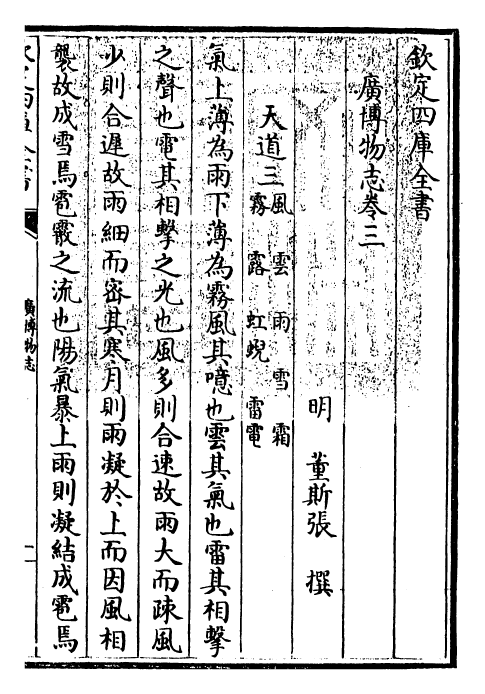 欽定四庫全書
廣博物志卷三
明 董斯張 撰
天道三 風 雲 雨 雪 霜
霧 露 虹蜺 雷電
氣上薄為雨下薄為霧風其噫也雲其氣也雷其相擊
之聲也電其相擊之光也風多則合速故雨大而疎風
少則合遲故雨細而密其寒月則雨凝於上而因風相
襲故成雪焉雹霰之流也陽氣暴上雨則凝結成雹焉
廣博物志